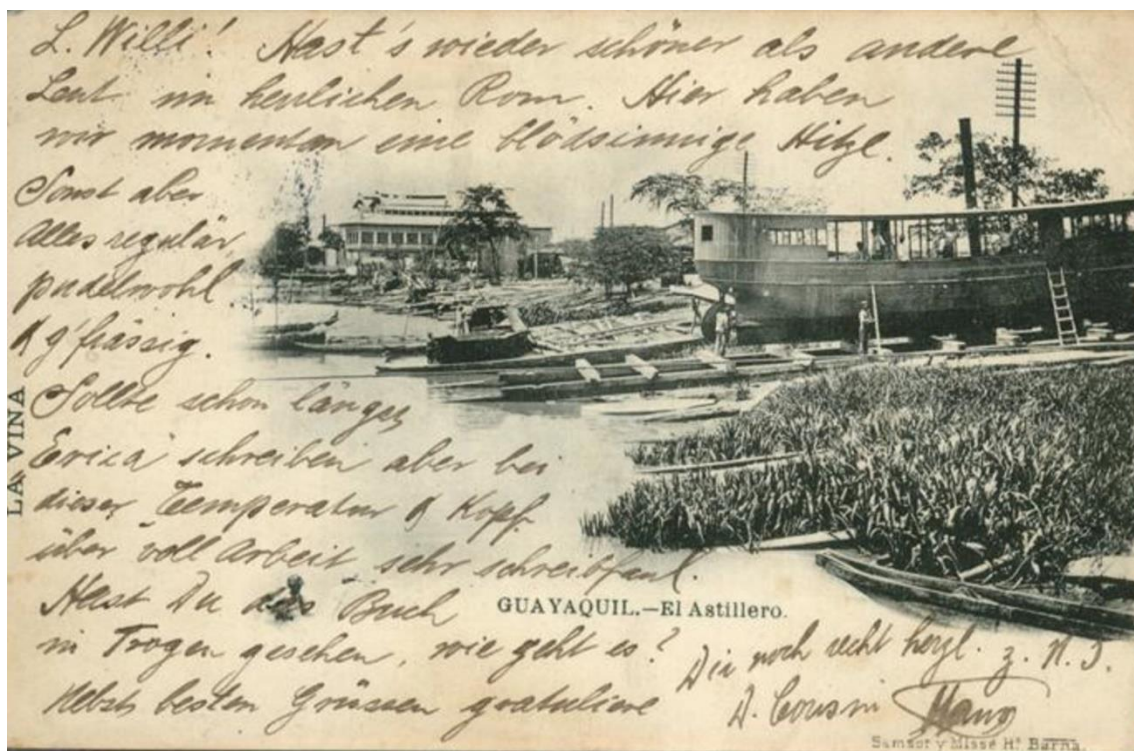 L. Willi! Hast's wieder schöner als andere
Leut im herrlichen Rom. Hier haben
wir momentan eine blödsinnige Hitze.
Sonst aber
Alles regulär,
pudelwohl
& g'frässig.
Sollte schon länger
Erica schreiben aber bei
dieser Temperatur & Kopf
über voll Arbeit sehr schreibfaul.
Hast Du das Buch
in Trogen gesehen, wie geht es?
Nebst besten Grüssen gratuliere
Dir noch recht herzl. z. N. J.
D. Cousin Hans
LA VINA
GUAYAQUIL.—El Astillero.
Samsot y Missé Hs. Barna.